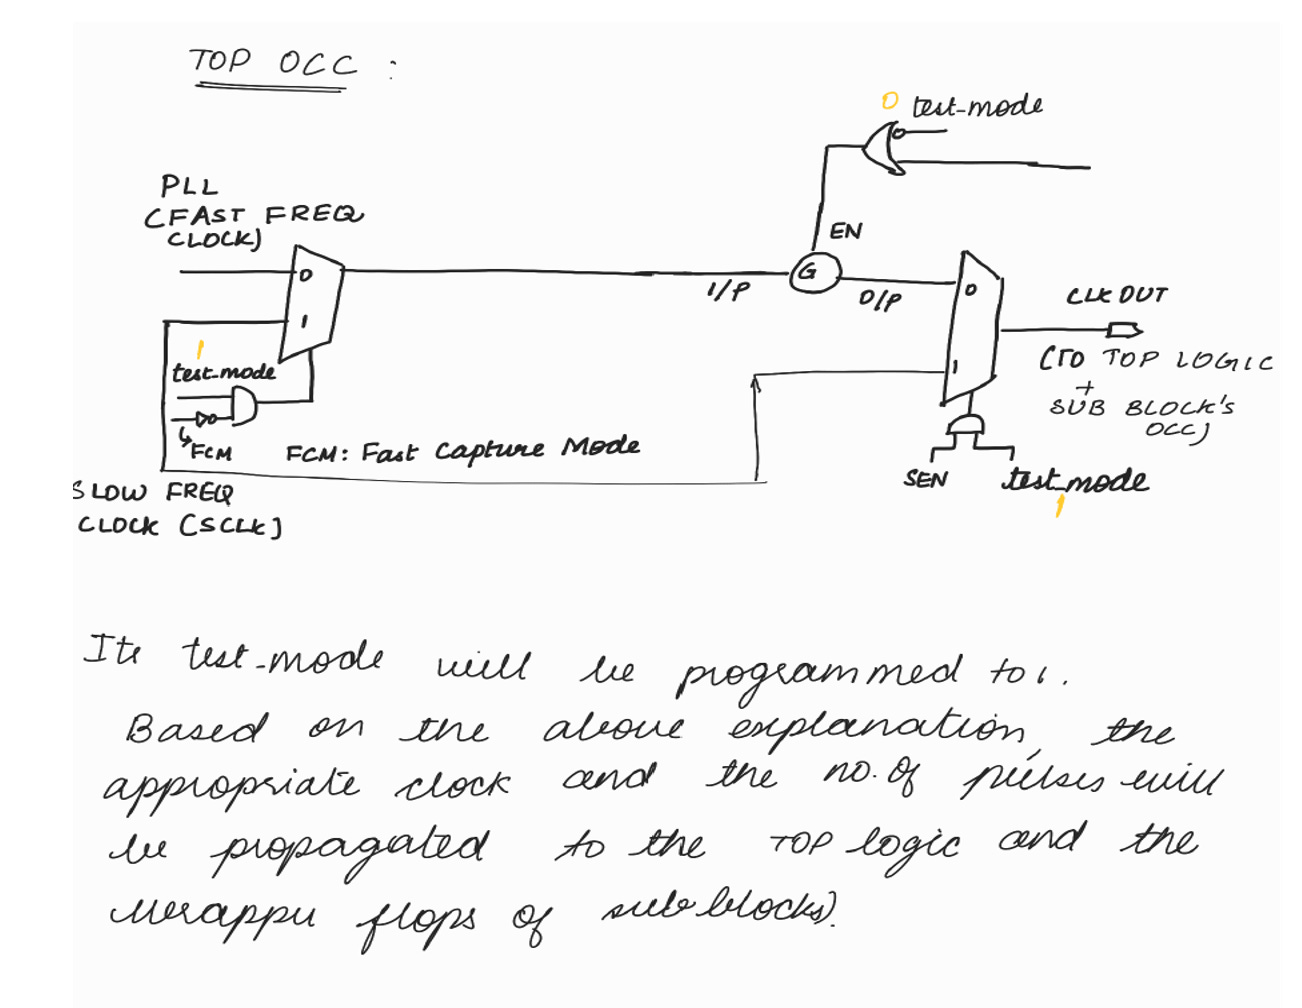 TOP OCC :
0 test_mode
PLL
(FAST FREQ
CLOCK)
EN
0
G
I/P
O/P
0
CLK OUT
1
1
test_mode
1
(TO TOP LOGIC
+
SUB BLOCK'S
OCC)
FCM
FCM: Fast Capture Mode
SEN
test_mode
1
SLOW FREQ
CLOCK (SCLK)
Its test_mode will be programmed to 1.
Based on the above explanation, the
appropriate clock and the no. of pulses will
be propagated to the TOP logic and the
flops of sub blocks).